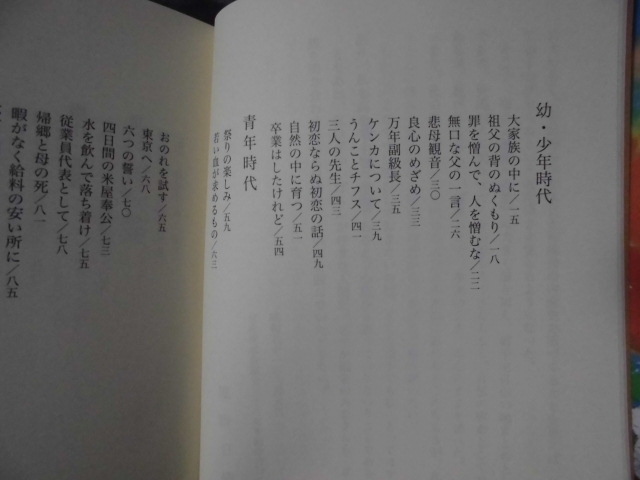 幼・少年時代
大家族の中に/一五
祖父の背のぬくもり/一八
罪を憎んで、人を憎むな/二二
無口な父の一言/二六
悲母観音/三〇
良心のめざめ/三三
万年副級長/三五
ケンカについて/三九
うんことチフス/四一
三人の先生/四三
初恋ならぬ初恋の話/四九
自然の中に育つ/五一
卒業はしたけれど/五四
青年時代
祭りの楽しみ/五九
若い血が求めるもの/六二
おのれを試す/六五
東京へ/六八
六つの誓い/七〇
四日間の米屋奉公/七三
水を飲んで落ち着け/七五
従業員代表として/七八
帰郷と母の死/八一
暇がなく給料の安い所に/八五